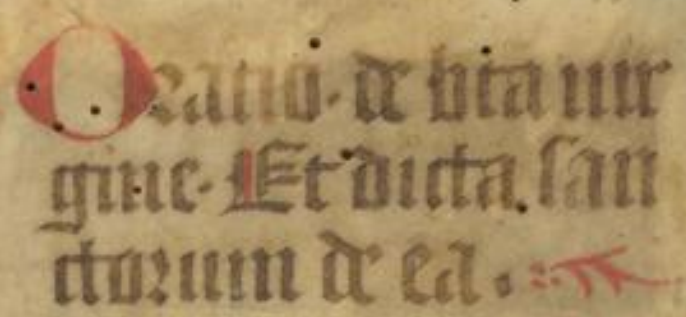 Oratio. de bta uir
gine. Et dicta san
ctorum de ea.